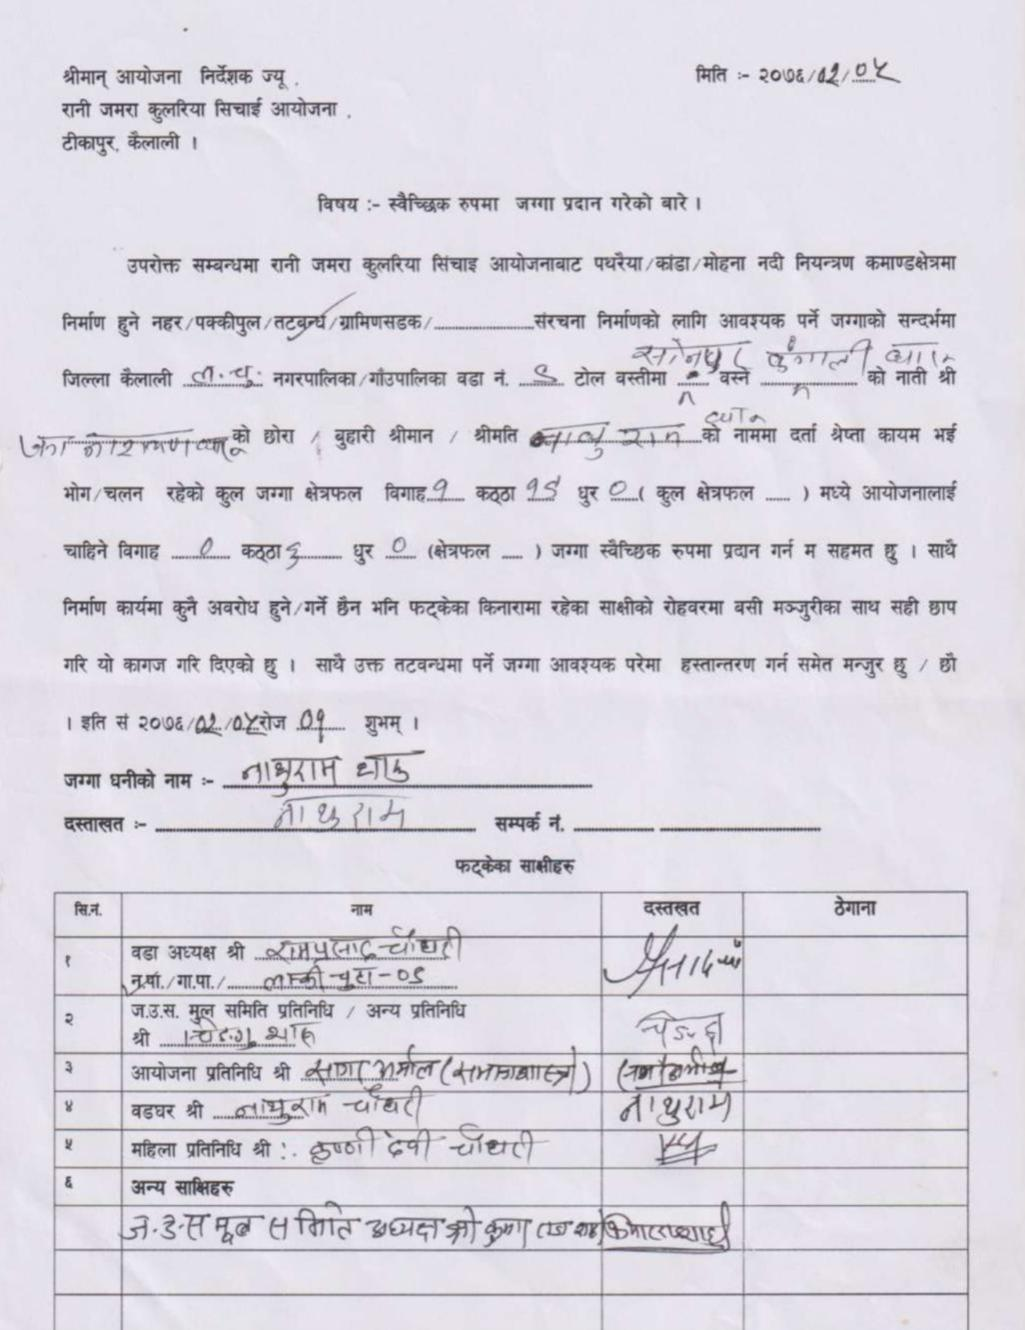 श्रीमान् आयोजना निर्देशक ज्यू .
मिति :- २०७६/०२/०५
रानी जमरा कुलरिया सिचाई आयोजना .
टीकापुर, कैलाली ।
विषय :- स्वैच्छिक रुपमा जग्गा प्रदान गरेको बारे ।
उपरोक्त सम्बन्धमा रानी जमरा कुलरिया सिंचाइ आयोजनाबाट पथरैया/कांडा/मोहना नदी नियन्त्रण कमाण्डक्षेत्रमा
निर्माण हुने नहर/पक्कीपुल/तटबन्ध/ग्रामिणसडक/..................संरचना निर्माणको लागि आवश्यक पर्ने जग्गाको सन्दर्भमा
जिल्ला कैलाली ल.चु. नगरपालिका/गाँउपालिका वडा नं. ९ टोल वस्तीमा वस्ने को नाती श्री
को छोरा / बुहारी श्रीमान / श्रीमति को नाममा दर्ता श्रेष्ता कायम भई
भोग/चलन रहेको कुल जग्गा क्षेत्रफल विगाह १ कठ्ठा धुर ० ( कुल क्षेत्रफल ..... ) मध्ये आयोजनालाई
चाहिने विगाह ० कठ्ठा धुर ० (क्षेत्रफल .... ) जग्गा स्वैच्छिक रुपमा प्रदान गर्न म सहमत छु । साथै
निर्माण कार्यमा कुनै अवरोध हुने/गर्ने छैन भनि फट्केका किनारामा रहेका साक्षीको रोहवरमा बसी मञ्जुरीका साथ सही छाप
गरि यो कागज गरि दिएको छु । साथै उक्त तटवन्धमा पर्ने जग्गा आवश्यक परेमा हस्तान्तरण गर्न समेत मन्जुर छु / छौ
। इति सं २०७६/०२/०५ रोज ०१ शुभम् ।
जग्गा धनीको नाम :- नाथुराम थारु
दस्ताखत :- नाथुराम सम्पर्क नं.
फट्केका साक्षीहरु
सि.नं. नाम दस्तखत ठेगाना
१ वडा अध्यक्ष श्री रामप्रसाद चौधरी
न.पा./गा.पा./ लम्की चुहा-०९
२ ज.उ.स. मुल समिति प्रतिनिधि / अन्य प्रतिनिधि
श्री थारु
३ आयोजना प्रतिनिधि श्री
४ वडघर श्री नाथुराम चौधरी नाथुराम
५ महिला प्रतिनिधि श्री : कृष्णी देवी चौधरी
६ अन्य साक्षिहरु
ज.उ.स मूल समिति अध्यक्ष श्री